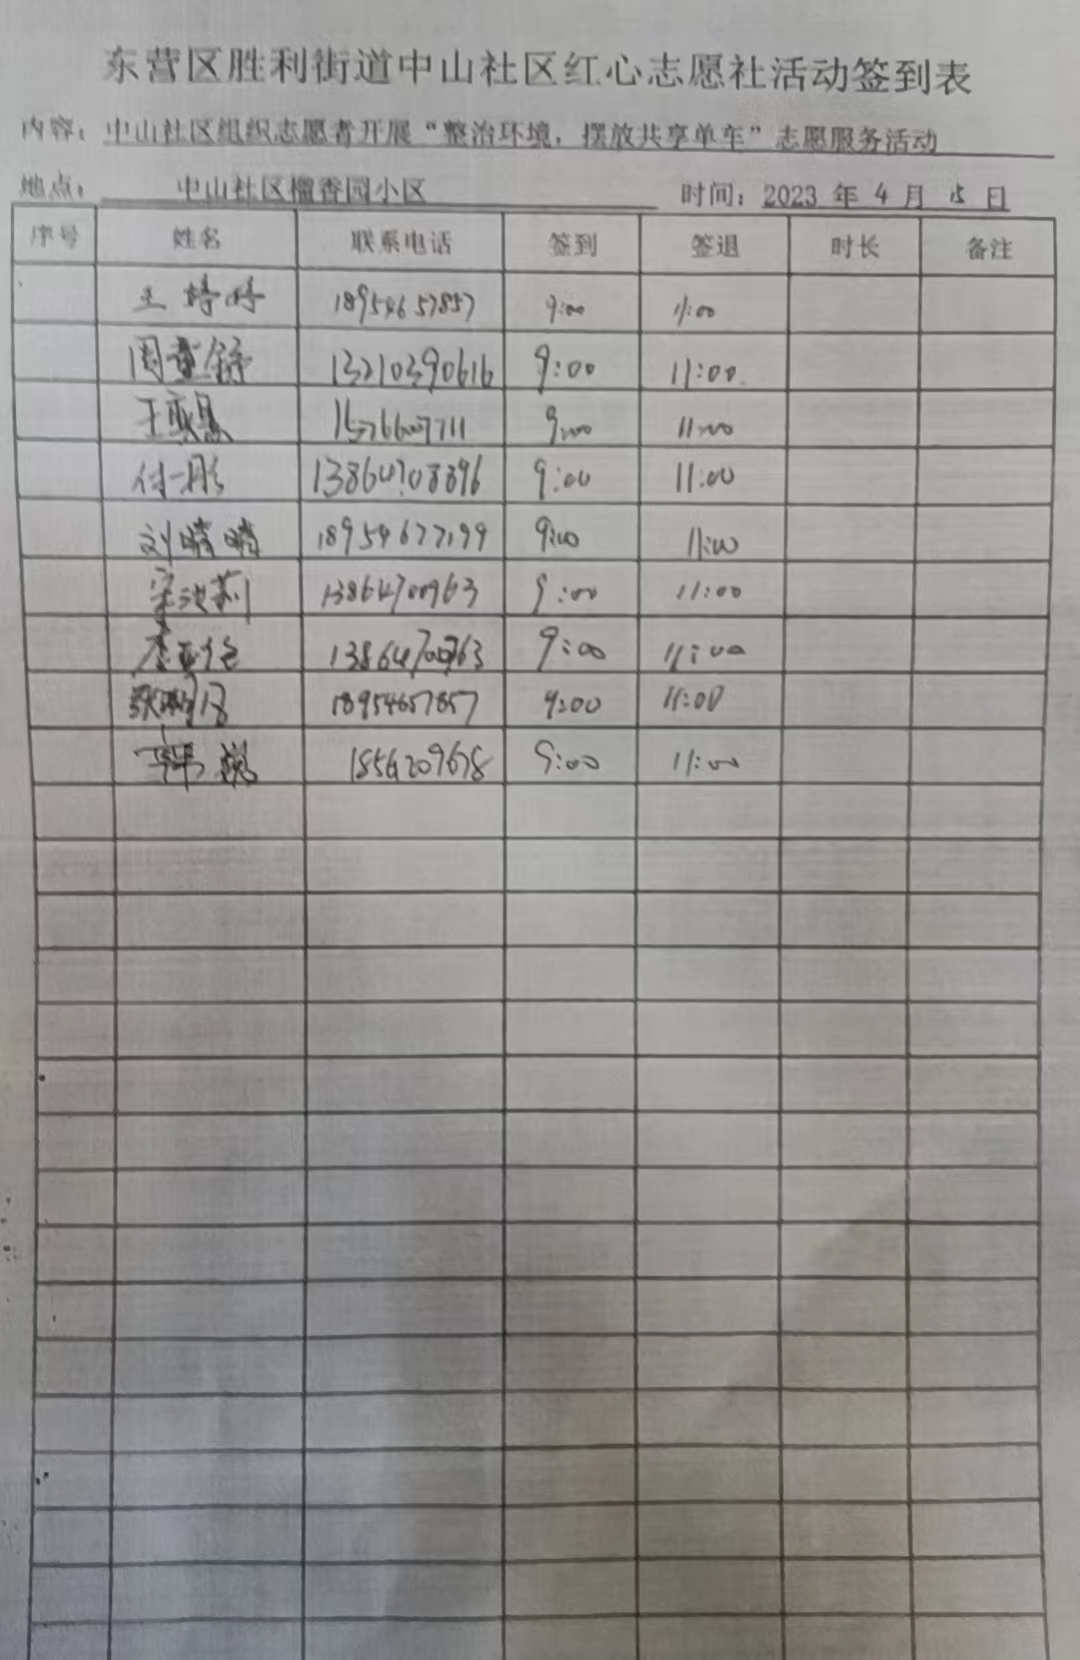 东营区胜利街道中山社区红心志愿社活动签到表
内容：中山社区组织志愿者开展“整治环境，摆放共享单车”志愿服务活动
地点：中山社区檀香园小区 时间：2023 年 4 月 15 日
序号 姓名 联系电话 签到 签退 时长 备注
王婷婷 18954657857 9:00 11:00
周童舒 13210390616 9:00 11:00
王奕 9:00 11:00
付一彤 13864708896 9:00 11:00
刘晴晴 18954677199 9:00 11:00
宋 莉 13864700963 9:00 11:00
13864700963 9:00 11:00
张 18954657857 9:00 11:00
韩 1856209678 9:00 11:00